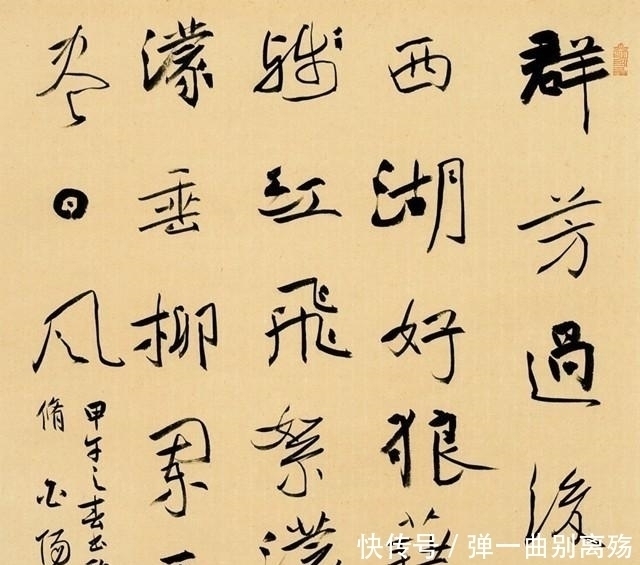 群芳過後
西湖好狼藉
殘紅飛絮濛
濛垂柳闌干
尽日風
甲午之春書
脩
快传号 / 弹一曲别离殇